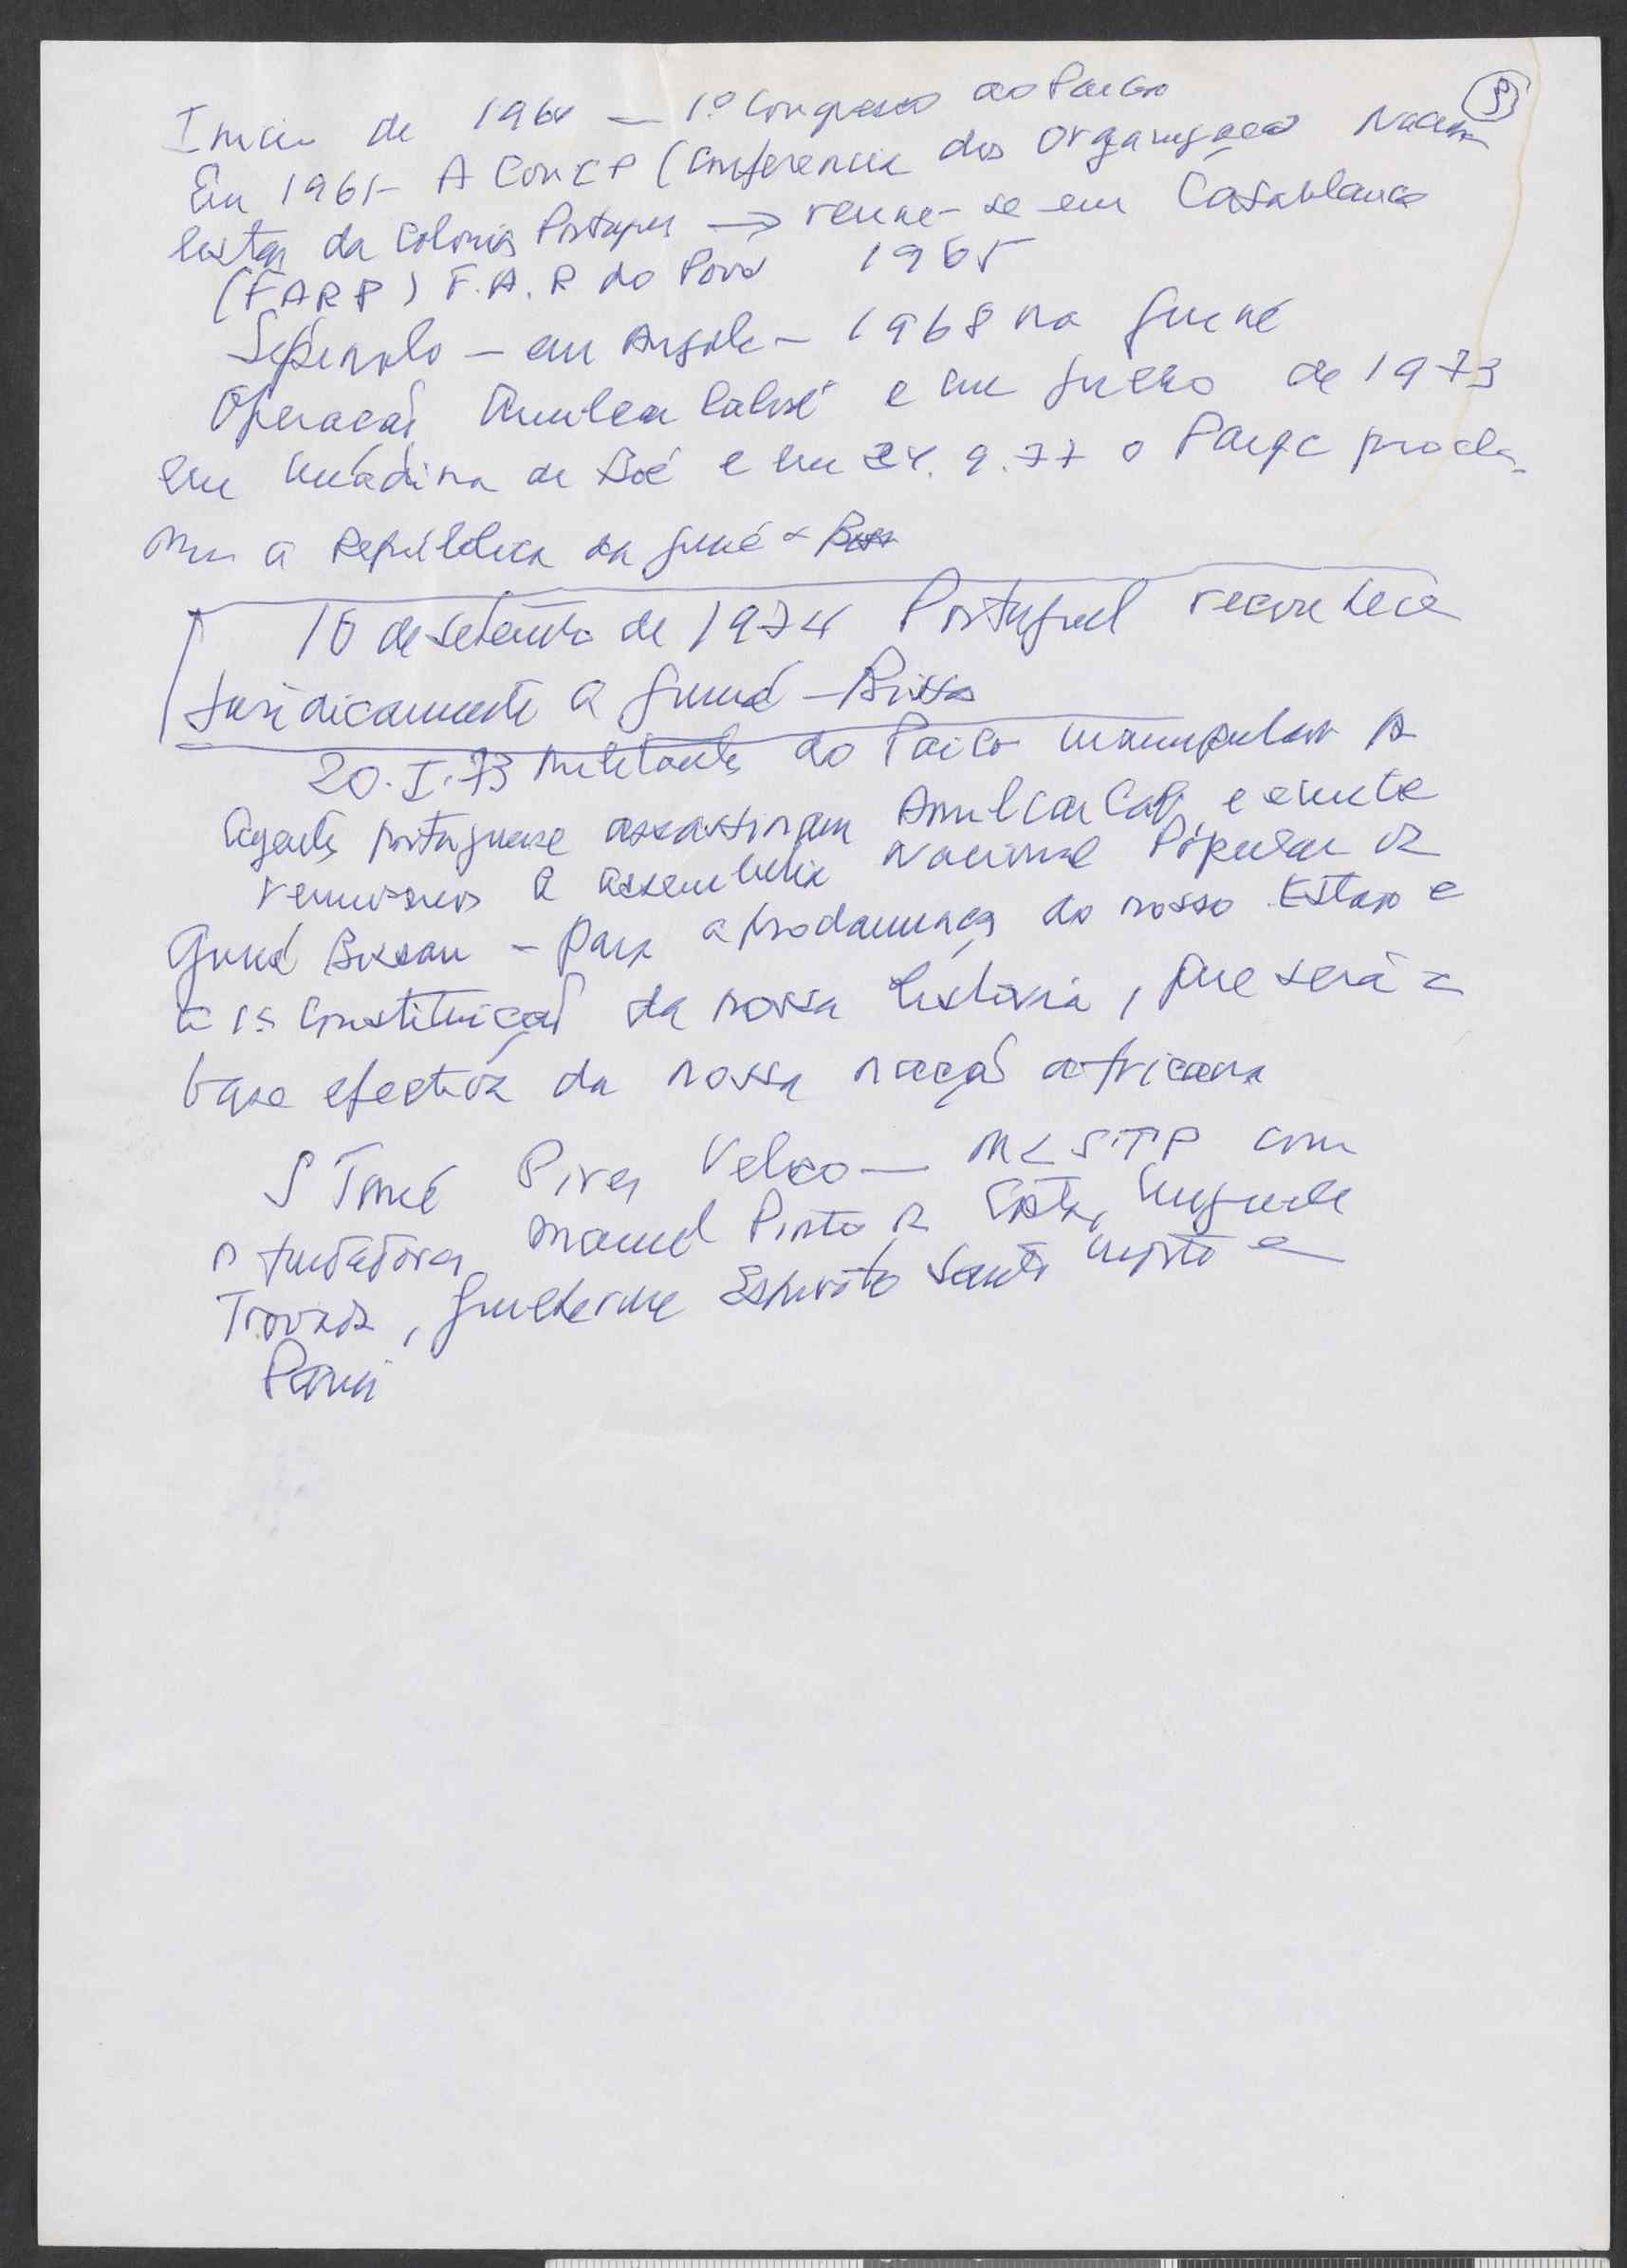 9
Início de 1964 — 1º Congresso do PAIGC
Em 1965 A CONCP (Conferencia das Organizações Nacion
listas da Colonias Portugues → reune-se em Casablanca
(FARP) F.A.R do Povo 1965
Spínola — em Angola — 1968 na Guiné
Operação Amilcar Cabral e em Julho de 1973
em Madina de Boé e em 24.9.77 o Paigc procla-
ma a República da Guiné -
10 de setembro de 1974 Portugal reconhece
Juridicamente a Guiné-Bissa
20.I.73 Militantes do Paigc manipulam
agentes portuguese assassinam Amilcar Cab e
reunirmos a assembleia Nacional Popular da
Guiné Bissau - para a proclamação do nosso Estado e
a 1ª Constituição da nossa história, que será a
base efectiva da nossa nação africana
S Tomé Pires Veloso — MLSTP com
o fundadores Manuel Pinto da Costa, Miguel
Trovoada, Guilherme Espirito Santo e